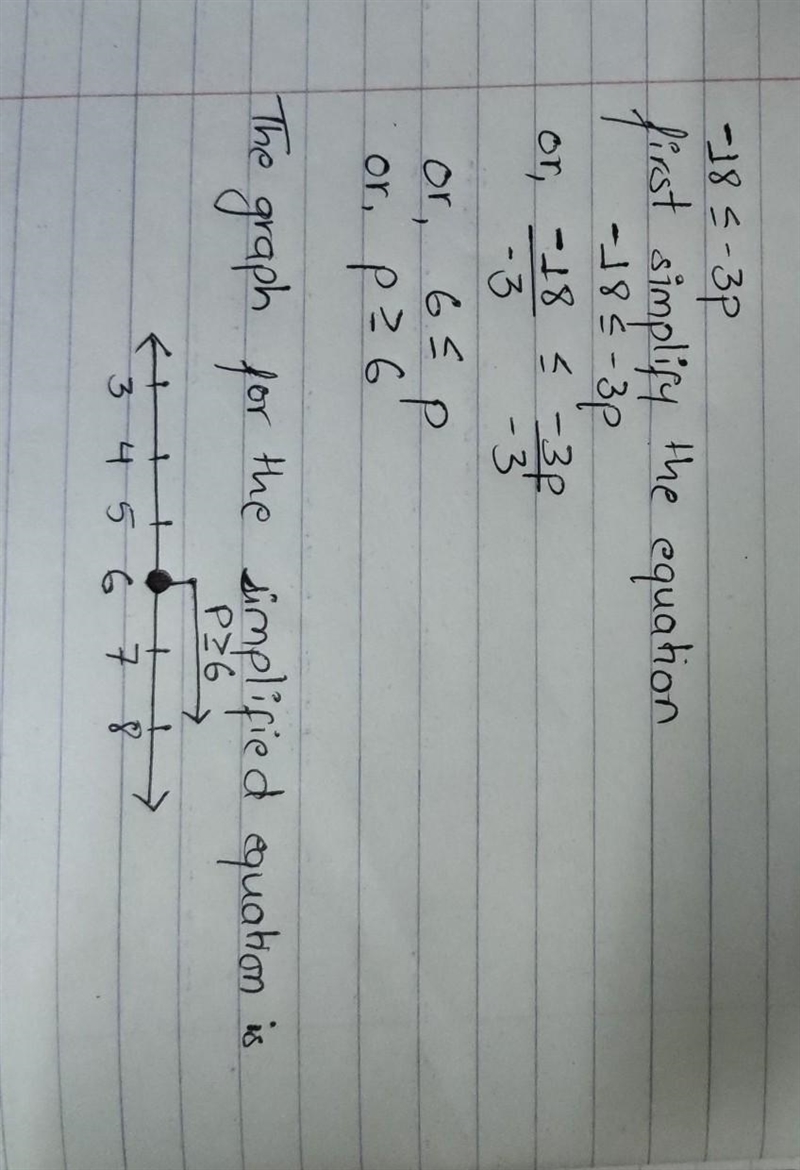 -18 ≤ -3p
first simplify the equation
-18 ≤ -3p
or, -18/-3 ≤ -3p/-3
or, 6 ≤ p
or, p ≥ 6
The graph for the simplified equation is
p≥6
3 4 5 6 7 8